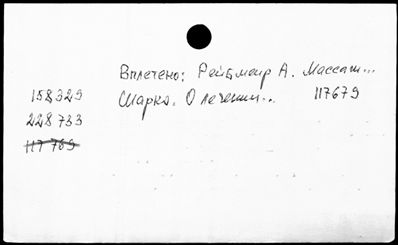 Вплетено: Рейбмайр А. Массаж...
Шарко. О лечении... 117679
158329
228733
117769